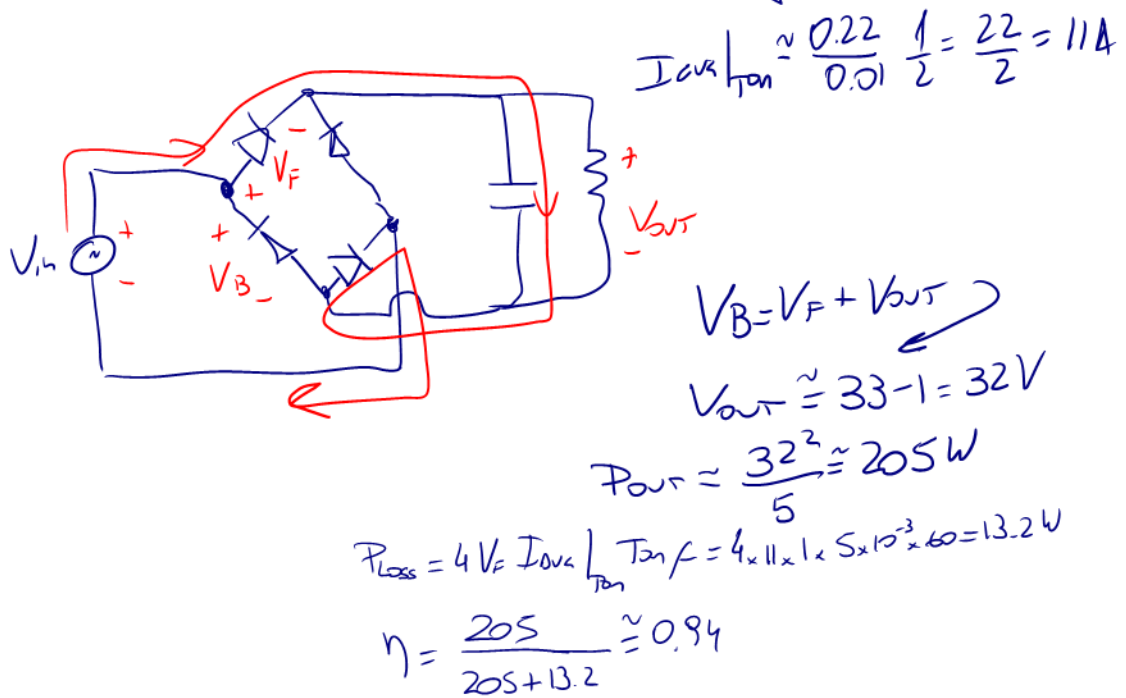 I_DVA|_Ton ≅ 0.22/0.01 1/2 = 22/2 = 11A
+ V_F -
V_in + -
+ V_B -
+ V_OUT -
V_B = V_F + V_OUT
V_OUT ≅ 33 - 1 = 32V
P_OUT ≅ 32²/5 ≅ 205W
P_Loss = 4 V_F I_DVA|_Ton Ton f = 4 x 11 x 1 x 5 x 10⁻³ x 60 = 13.2 W
η = 205/(205 + 13.2) ≅ 0.94